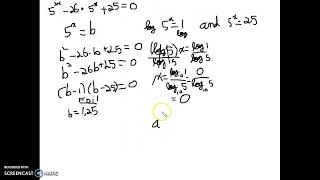 5^2x - 26 · 5^x + 25 = 0
5^x = b
b² - 26·b + 25 = 0
b² - 26b + 25 = 0
(b-1)(b-25) = 0
b = 1, 25
log 5^x = log 1 and 5^x = 25
(log 5)x = log 1
log 5 log 5
x = log₁₀ 1 / log₁₀ 5 = 0 / log₁₀ 5
= 0
a
RECORDED WITH
SCREENCAST MATIC